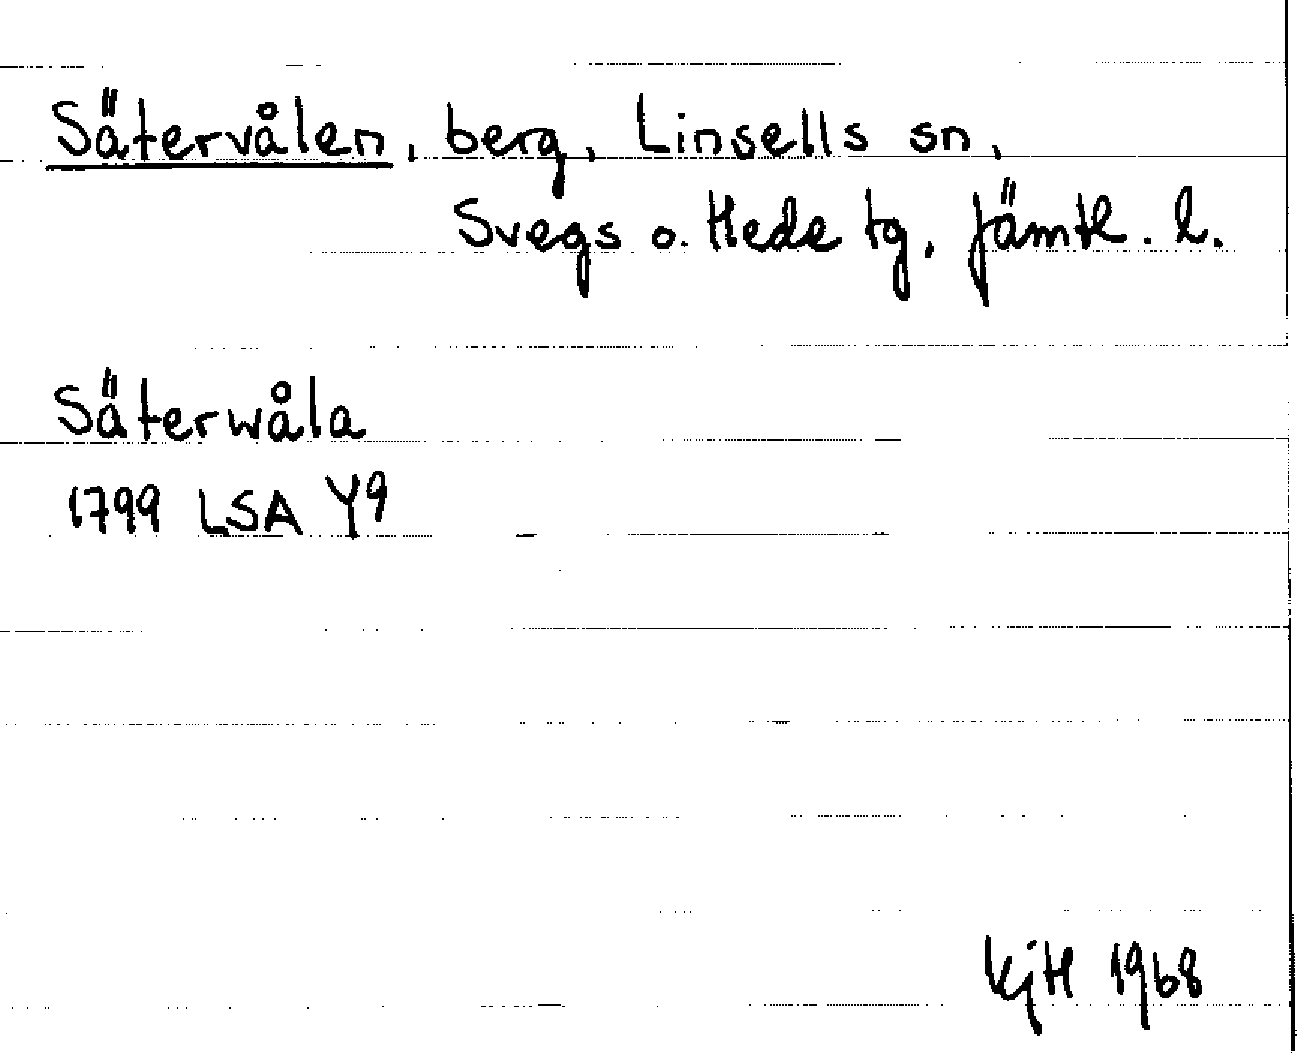 Sätervålen, berg, Linsells sn,
Svegs o. Hede tg, Jämtl. l.
Säterwåla
1799 LSA Y9
KjH 1968